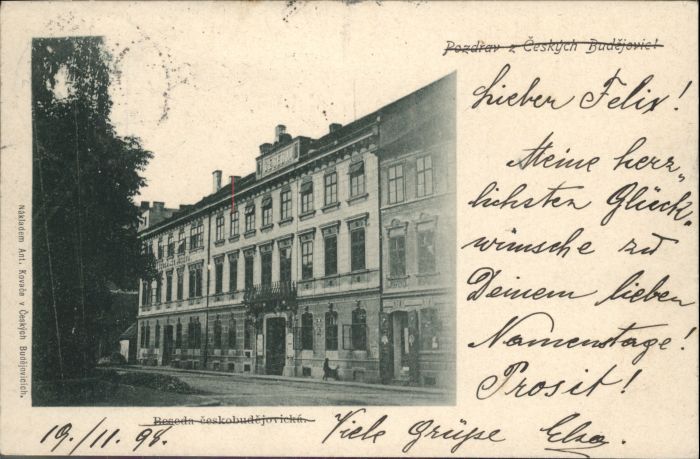 Pozdrav z Českých Budějovic!
Lieber Felix!
Meine herz„
lichsten Glück„
wünsche zu
Deinem lieben
Namenstage!
Prosit!
Nákladem Ant. Kovače v Českých Budějovicích.
Beseda českobudějovická.
19./11. 98.
Viele Grüße Elsa.